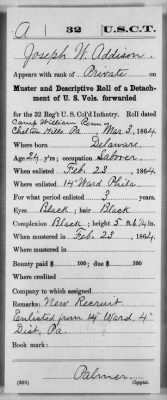 A 32 U.S.C.T.
Joseph W. Addison
Appears with rank of Private on
Muster and Descriptive Roll of a Detach-
ment of U. S. Vols. forwarded
for the 32 Reg't U. S. Col'd Infantry. Roll dated
Camp William Penn
Chelten Hills Pa Mar 3, 1864
Where born Delaware
Age 24 y'rs; occupation Laborer
When enlisted Feb. 23, 1864
Where enlisted 14" Ward Phila
For what period enlisted 3 years
Eyes Black; hair Black
Complexion Black; height 5 ft. 6 1/4 in.
When mustered in Feb. 23, 1864
Where mustered in
Bounty paid $ 100; due $ 100
Where credited
Company to which assigned
Remarks: New Recruit
Enlisted from 14" Ward, 4"
Dist, Pa.
Book mark:
Palmer
Copyist.